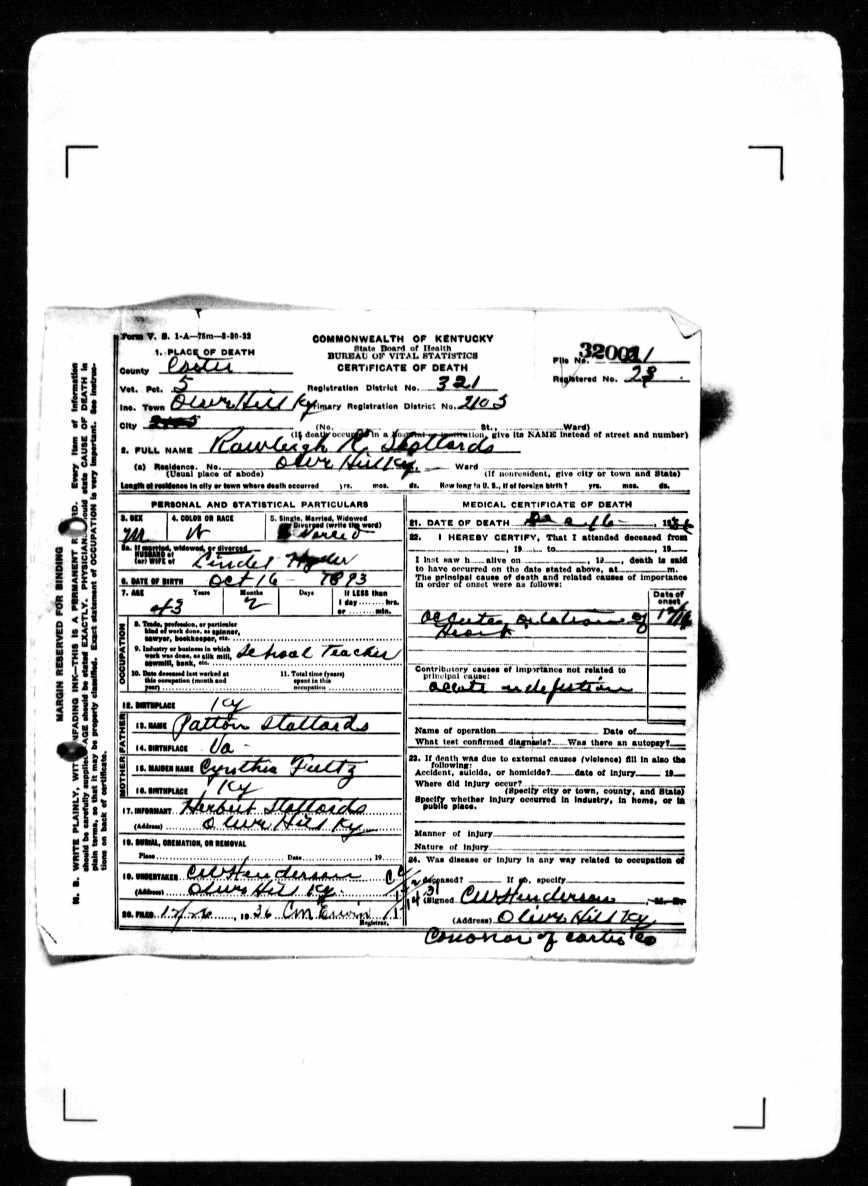 Form V. S. 1-A—75m—8-30-32
COMMONWEALTH OF KENTUCKY
State Board of Health
BUREAU OF VITAL STATISTICS
CERTIFICATE OF DEATH
File No.
Registered No.
1. PLACE OF DEATH
County Carter
Vot. Pct. 5 Registration District No. 321
Inc. Town Olive Hill Ky Primary Registration District No. 2103
City (No. St., Ward)
(If death occurred in a hospital or institution, give its NAME instead of street and number)
2. FULL NAME Rawleigh R. Stallards
(a) Residence. No. Olive Hill Ky. Ward
(Usual place of abode) (If nonresident, give city or town and State)
Length of residence in city or town where death occurred yrs. mos. ds. How long in U. S., if of foreign birth? yrs. mos. ds.
PERSONAL AND STATISTICAL PARTICULARS
3. SEX 4. COLOR OR RACE 5. Single, Married, Widowed
Divorced (write the word)
M W
5a. If married, widowed, or divorced
HUSBAND of
(or) WIFE of
6. DATE OF BIRTH Oct 16 - 1893
7. AGE Years Months Days If LESS than
1 day hrs.
or min.
43 2
OCCUPATION
8. Trade, profession, or particular
kind of work done, as spinner,
sawyer, bookkeeper, etc.
9. Industry or business in which
work was done, as silk mill,
sawmill, bank, etc. School Teacher
10. Date deceased last worked at
this occupation (month and
year)
11. Total time (years)
spent in this
occupation
12. BIRTHPLACE Ky
FATHER
13. NAME Patton Stallards
14. BIRTHPLACE Va -
MOTHER
15. MAIDEN NAME Cynthia Fultz
16. BIRTHPLACE Ky
17. INFORMANT Herbert Stallards
(Address) Olive Hill Ky
18. BURIAL, CREMATION, OR REMOVAL
Place Date , 19
19. UNDERTAKER CW Henderson
(Address) Olive Hill Ky.
20. FILED 12/26, 1936 CM Erwin
Registrar.
MEDICAL CERTIFICATE OF DEATH
21. DATE OF DEATH
22. I HEREBY CERTIFY, That I attended deceased from
, 19 to , 19
I last saw h alive on , 19 , death is said
to have occurred on the date stated above, at m.
The principal cause of death and related causes of importance
in order of onset were as follows:
Date of
onset
12/16
of
Heart
Contributory causes of importance not related to
principal cause:
Name of operation Date of
What test confirmed diagnosis? Was there an autopsy?
23. If death was due to external causes (violence) fill in also the
following:
Accident, suicide, or homicide? date of injury 19
Where did injury occur?
(Specify city or town, county, and State)
Specify whether injury occurred in industry, in home, or in
public place.
Manner of injury
Nature of injury
24. Was disease or injury in any way related to occupation of
deceased? If so, specify
(Signed CW Henderson, M. D.
(Address) Olive Hill Ky
Coronor of Carter Co
MARGIN RESERVED FOR BINDING
N. B. WRITE PLAINLY, WITH UNFADING INK—THIS IS A PERMANENT RECORD. Every item of information
should be carefully supplied. AGE should be stated EXACTLY. PHYSICIANS should state CAUSE OF DEATH in
plain terms, so that it may be properly classified. Exact statement of OCCUPATION is very important. See instruc-
tions on back of certificate.